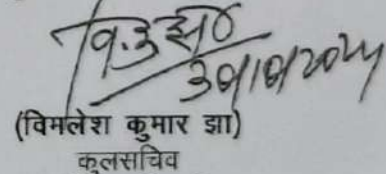 वि.कु.झा
30/10/2024
(विमलेश कुमार झा)
कुलसचिव